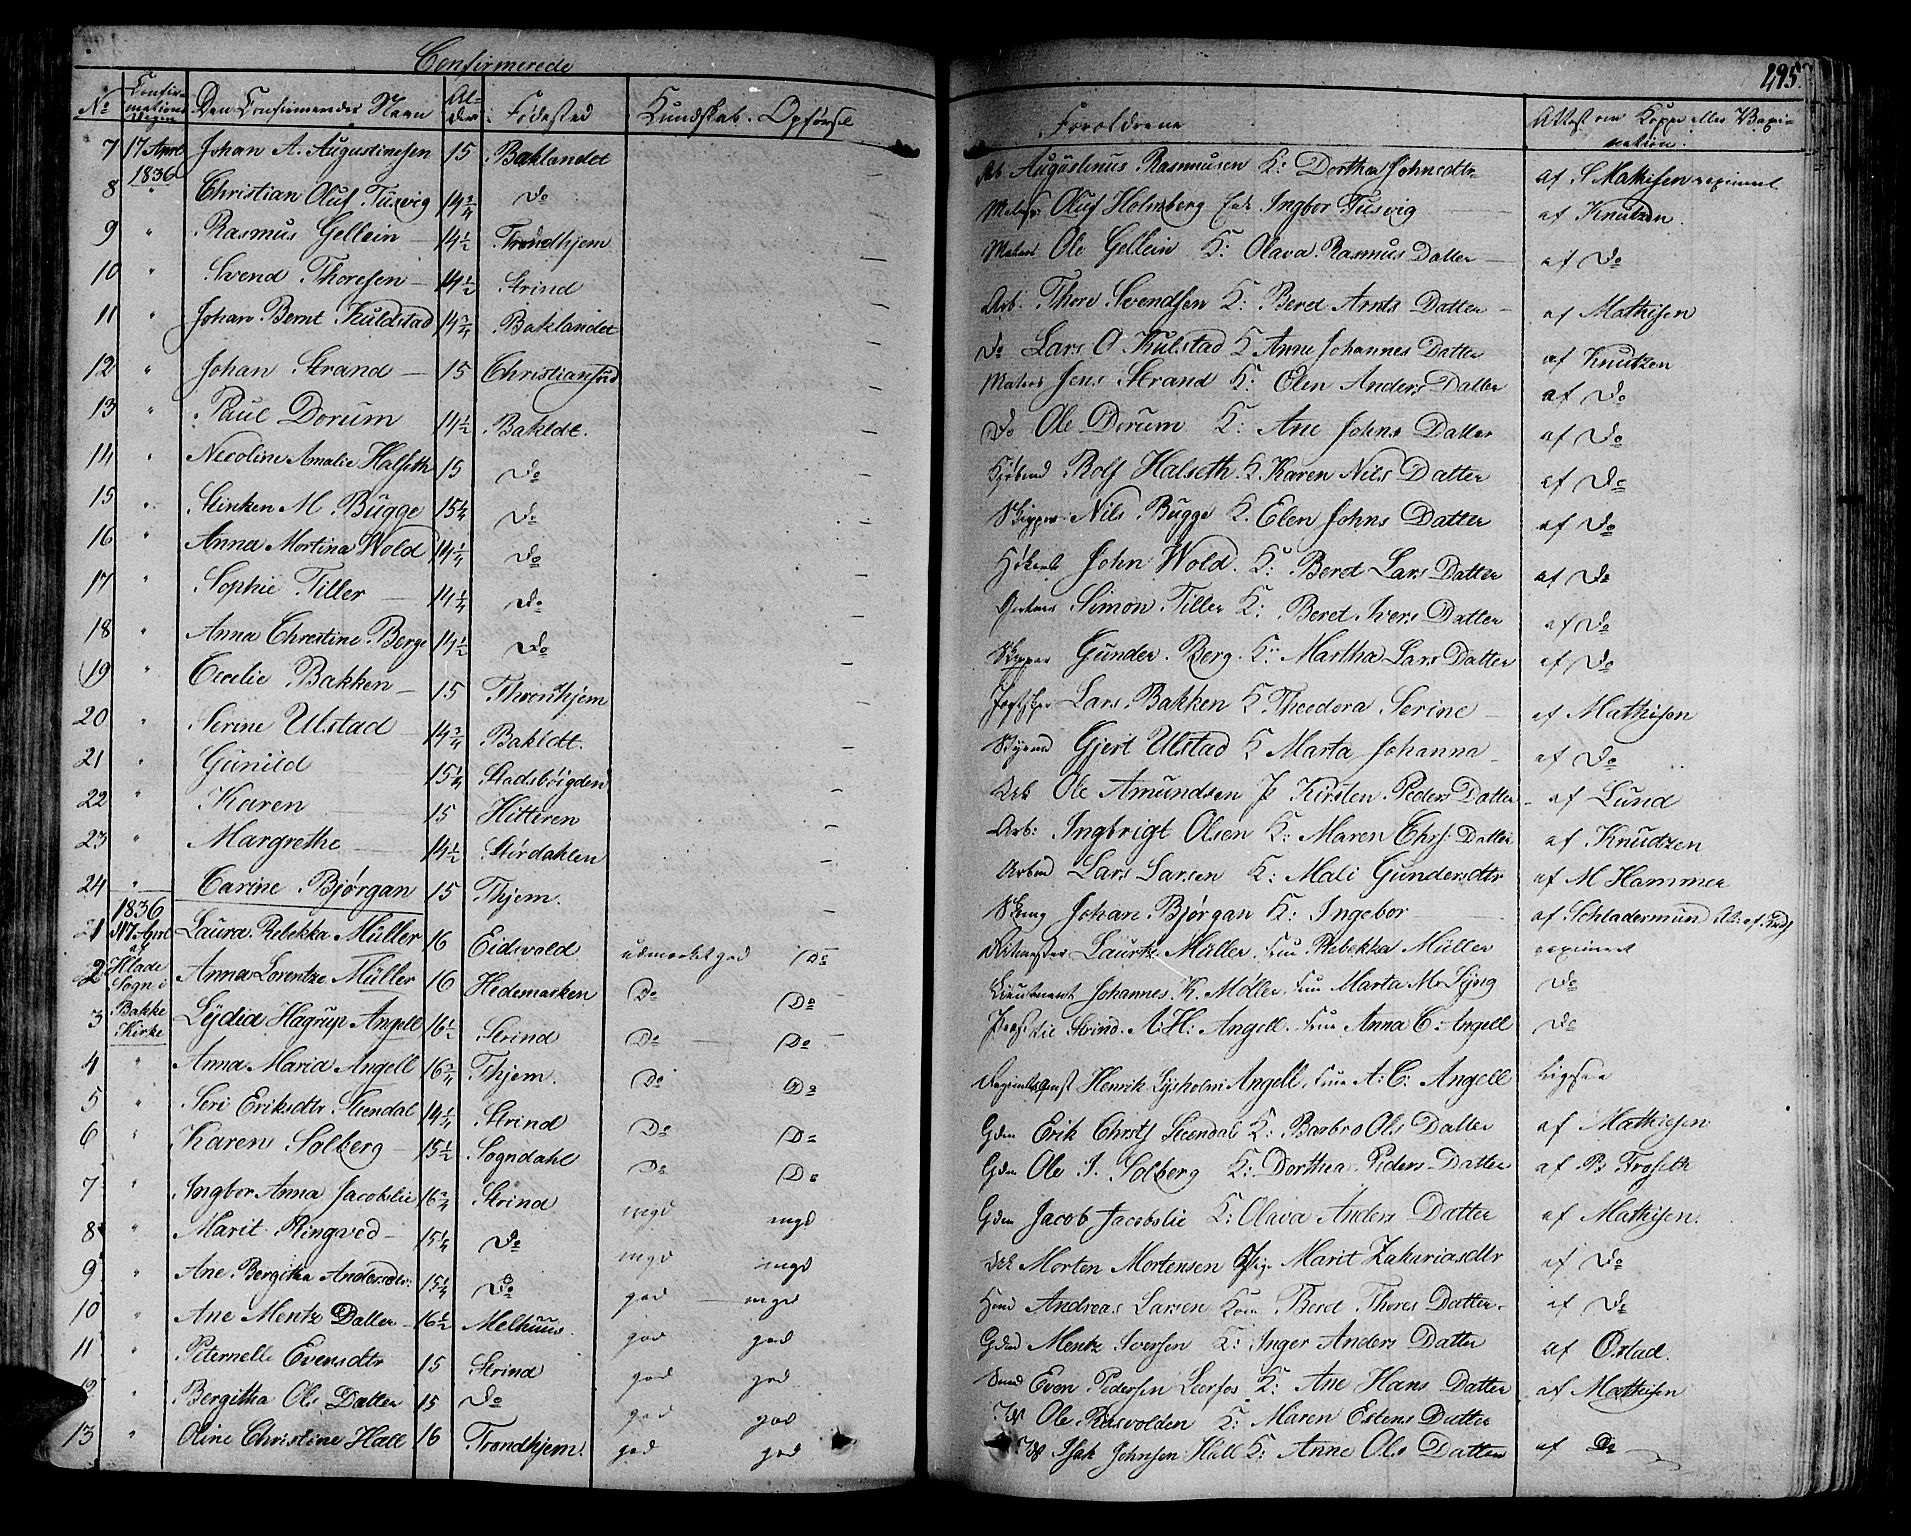 Confirmerede
295.
No Confirmations Dagen Den Confirmeredes Navn Alder Fødested Kundskab. Opførsel Forældrene Attest om Koppe eller Vaxination.
7 17 April 1836 Johan A. Augustinesen 15 Baklandet Arb Augustinus Rasmusen K: Dorthea Johnedtr af S Mathisen vaxineret
8 " Christian Oluf Tusvig 14 3/4 Do Oluf Holmberg Enk Ingbor Tusvig af Knutzen.
9 " Rasmus Gellein 14 1/2 Trondhjem Matros Ole Gellein K: Olava Rasmus Datter af Do
10 " Svend Thoresen 14 1/2 Strind Arb: Thore Svendsen K: Beret Arnts Datter af Mathisen
11 " Johan Bernt Kuldstad 14 3/4 Baklandet Do Lars O Kulstad K Anne Johannes Datter af Knutzen
12 " Johan Strand 15 Christiansund Matros Jens Strand K: Olen Anders Datter af Do
13 " Paul Dorum 14 1/2 Bakldt. Do Ole Dorum K: Ane Johns Datter af Do
14 " Necoline Amalie Halseth 15 Do Rolf Halseth K. Karen Nils Datter af Do
15 " Stinken M. Bugge 15 1/4 Do Skipper Nils Bugge K. Elen Johns Datter af Do
16 " Anna Mortina Wold 14 1/4 Do John Wold. K: Beret Lars Datter af Do
17 " Sophie Tiller 14 1/4 Do Simon Tiller K: Beret Ivers Datter af Do
18 " Anna Chrestine Berge 14 1/2 Do Skipper Gunder Berg. K: Martha Lars Datter af Do
19 " Cecelie Bakken 15 Thronhjem Lars Bakken K Theodora Serine af Mathisen
20 " Serine Ulstad 14 3/4 Bakldt. Gjert Ulstad K Marta Johanna af Do
21 " Gunild 15 1/4 Stadsbøigden Arb Ole Amundsen P Kirsten Peders Datter af Lund
22 " Karen 15 Hitteren Arb: Ingbrigt Olsen K: Maren Chrs: Datter af Knudzen
23 " Margrethe 14 1/2 Størdahlen Arbmd Lars Larsen K: Mali Gundersdtr af M Hammer
24 " Carine Bjørgan 15 Thjem. Johan Bjørgan K: Ingebor af Schladermun
1836
1 17 April af Laura Rebekka Müller 16 Eidsvold udmerket god Do Lauritz Müller Frue Rebekka Müller vaxineret
2 Hlade Sogn i Anna Lorentze Müller 16 Hedemarken Do Do Lieutenant Johannes K. Møller Frue Marta M. Lyng Do
3 Bakke Kirke Lydia Hagrup Angell 16 1/2 Strind Do Do Præst til Strind. A: H: Angell. Frue Anna C: Angell Do
4 " Anna Maria Angell 16 3/4 Thjem. Do Do Henrik Lysholm Angell. Frue A: C: Angell Ligesaa
5 " Seri Eriksdtr Steendal 14 1/4 Strind Do Do Gdm Erik Christs Steendal K: Barbro Ols Datter af Mathisen
6 " Karen Solberg 15 1/2 Sogndahl Do Do Gdm Ole J. Solberg K: Dorthea Peders Datter af B Froseth
7 " Ingbor Anna Jacobslie 16 3/4 Strind mgd mgd Gdm Jacob Jacobslie K: Olava Anders Datter af Mathisen.
8 " Marit Ringved 15 1/4 Do mgd mgd Morten Mortensen Pige Marit Zakariasdtr af Do
9 " Ane Bergitha Andersdtr: 15 1/4 Do god mgd Hmd Andreas Larsen Kone Beret Thores Datter. af Do
10 " Ane Mentz Datter 16 1/2 Melhuus. god god Gdm Mentz Iversen K: Inger Anders Datter af Østad.
11 " Peternelle Evensdtr 15 Strind god god Even Pedersen Leerfos K: Ane Hans Datter af Mathisen
12 " Bergitha Ols Datter 15 Do god god Ole Risvolden K: Maren Estens Datter
13 " Oline Christine Hall 16 Trondhjem. god god Isak Johnsen Hall K: Anne Ols Datter af Do